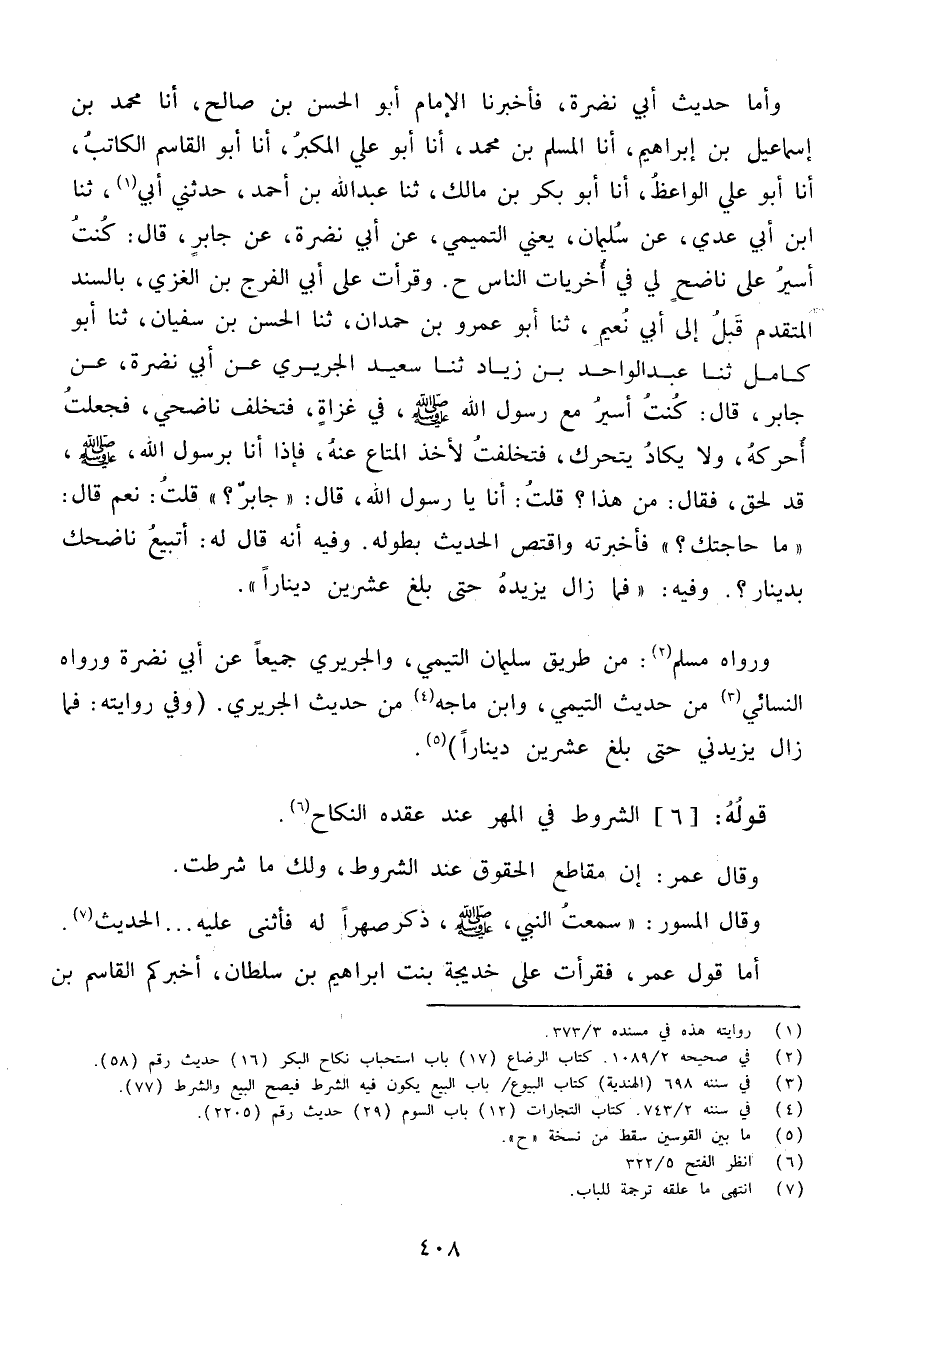 وأما حديث أبي نضرة، فأخبرنا الإمام أبو الحسن بن صالح، أنا محمد بن
إسماعيل بن إبراهيم، أنا المسلم بن محمد، أنا أبو علي المكبرُ، أنا أبو القاسم الكاتبُ،
أنا أبو علي الواعظُ، أنا أبو بكر بن مالك، ثنا عبدالله بن أحمد، حدثني أبي(١)، ثنا
ابن أبي عدي، عن سُليمان، يعني التميمي، عن أبي نضرة، عن جابرٍ، قال: كُنتُ
أسيرُ على ناضحٍ لي في أُخريات الناس ح. وقرأت على أبي الفرج بن الغزي، بالسند
المتقدم قَبلُ إلى أبي نُعيم، ثنا أبو عمرو بن حمدان، ثنا الحسن بن سفيان، ثنا أبو
كامل ثنا عبدالواحد بن زياد ثنا سعيد الجريري عن أبي نضرة، عن
جابر، قال: كُنتُ أسيرُ مع رسول الله ﷺ، في غزاةٍ، فتخلف ناضحي، فجعلتُ
أُحركهُ، ولا يكادُ يتحرك، فتخلفتُ لأخذ المتاع عنهُ، فإذا أنا برسول الله، ﷺ،
قد لحق، فقال: من هذا؟ قلتُ: أنا يا رسول الله، قال: «جابرٌ؟» قلتُ: نعم قال:
«ما حاجتك؟» فأخبرته واقتص الحديث بطوله. وفيه أنه قال له: أتبيعُ ناضحك
بدينار؟. وفيه: «فما زال يزيدهُ حتى بلغ عشرين ديناراً».
ورواه مسلم(٢): من طريق سليمان التيمي، والجريري جميعاً عن أبي نضرة ورواه
النسائي(٣) من حديث التيمي، وابن ماجه(٤) من حديث الجريري. (وفي روايته: فما
زال يزيدني حتى بلغ عشرين ديناراً)(٥).
قولُهُ: [٦] الشروط في المهر عند عقده النكاح(٦).
وقال عمر: إن مقاطع الحقوق عند الشروط، ولك ما شرطت.
وقال المسور: «سمعتُ النبي، ﷺ، ذكر صهراً له فأثنى عليه... الحديث(٧).
أما قول عمر، فقرأت على خديجة بنت ابراهيم بن سلطان، أخبركم القاسم بن
(١) روايته هذه في مسنده ٣٧٣/٣.
(٢) في صحيحه ١٠٨٩/٢. كتاب الرضاع (١٧) باب استحباب نكاح البكر (١٦) حديث رقم (٥٨).
(٣) في سننه ٦٩٨ (الهندية) كتاب البيوع/ باب البيع يكون فيه الشرط فيصح البيع والشرط (٧٧).
(٤) في سننه ٧٤٣/٢. كتاب التجارات (١٢) باب السوم (٢٩) حديث رقم (٢٢٠٥).
(٥) ما بين القوسين سقط من نسخة «ح».
(٦) انظر الفتح ٣٢٢/٥
(٧) انتهى ما علقه ترجمة للباب.
٤٠٨